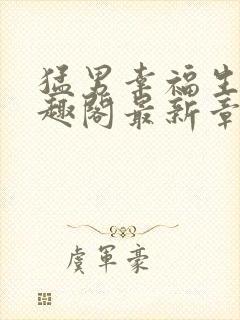 猛男幸福生
趣阁最新章
虞军豪